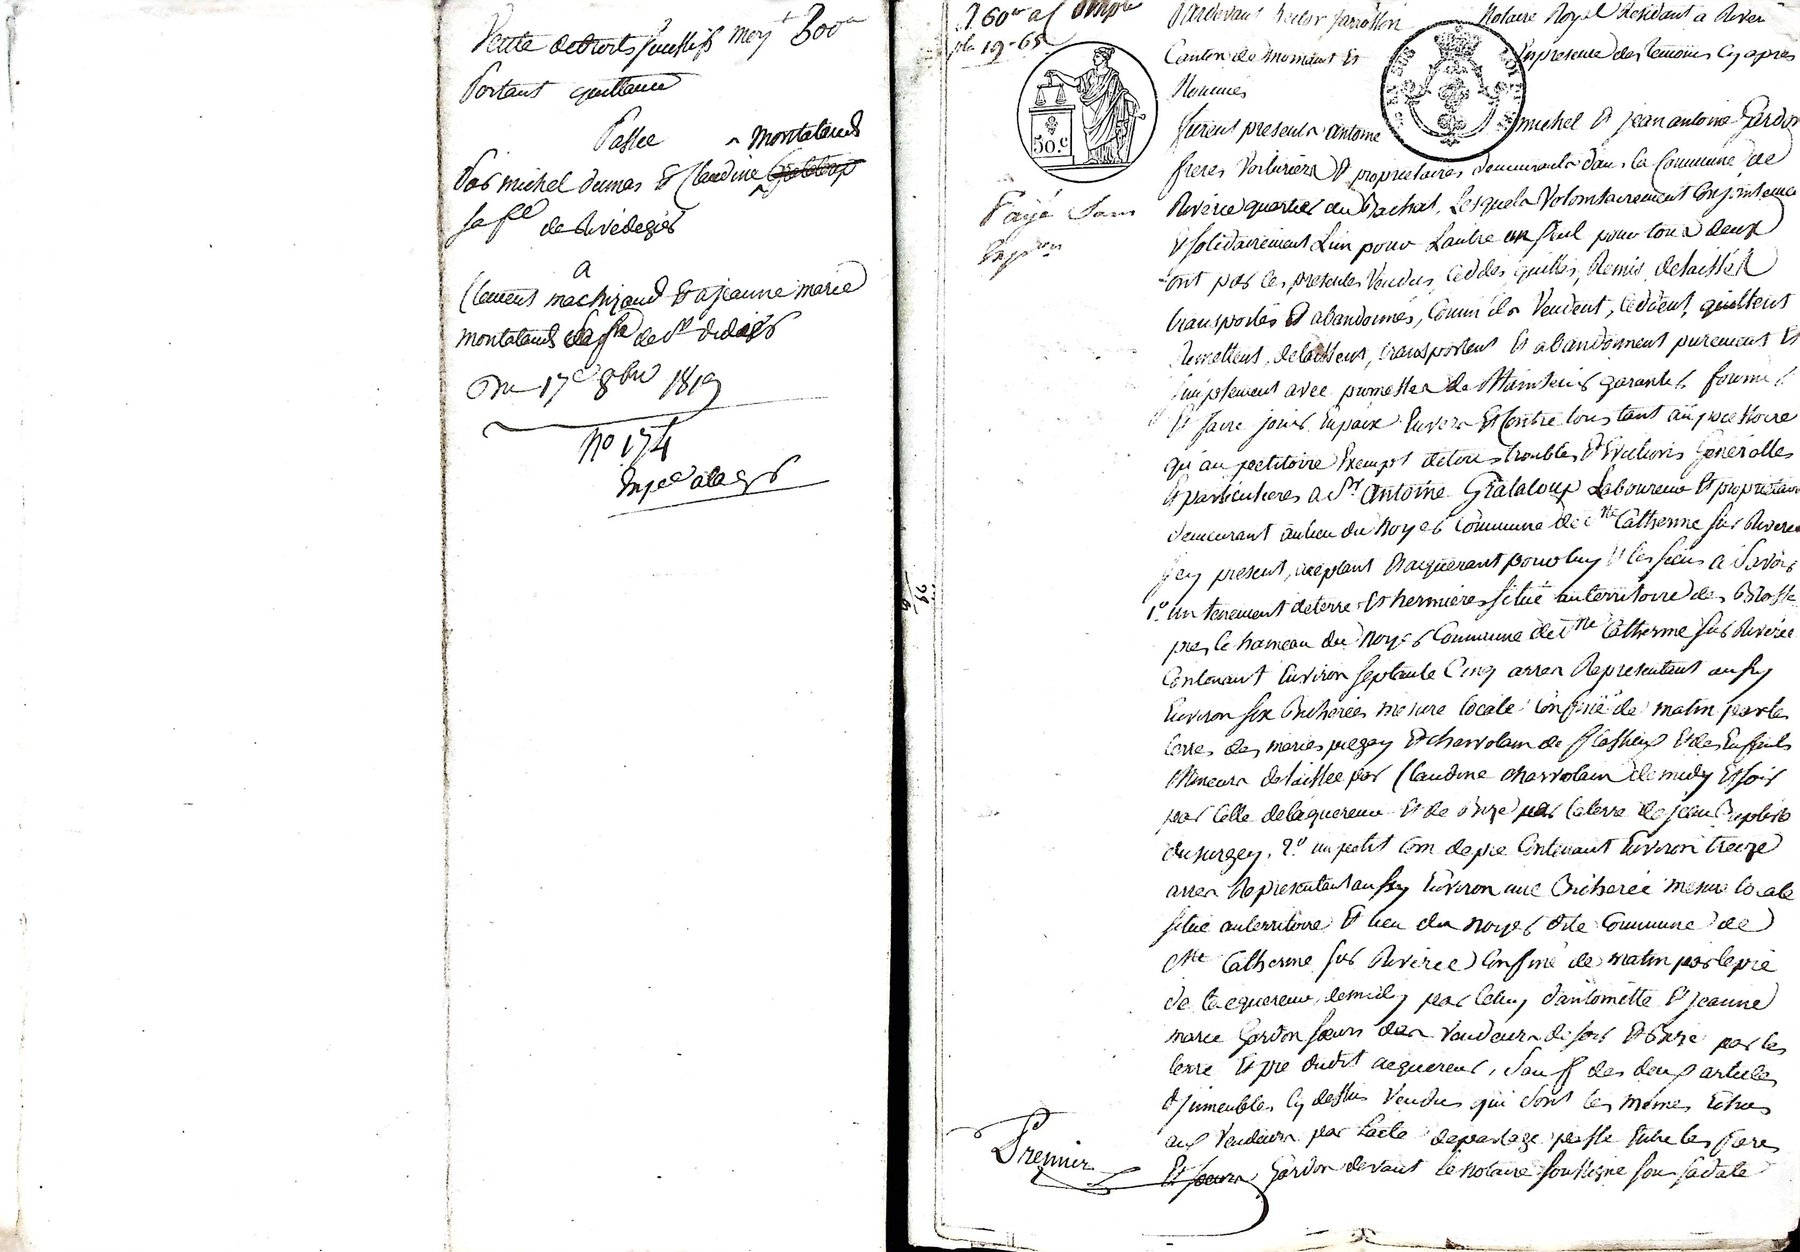 Vente de droits successifs moyt 300
Portant quittance
Passée
Par michel dumas Et Claudine montaland
sa fe de Rivedegier
a
Clement machizaud Et a jeanne marie
montaland sa fe de St didier
Du 17 8bre 1819
No 174
Pardevant hector Notaire Royal Résidant a Riverie
Canton de mornant Et En presence des temoins cy apres
Nommés
furent presents antoine michel Et jean antoine Gardon
freres Voituriers Et proprietaires demeurants dans la Commune de
Riverie quartier du Bachat, Lesquels Volontairement Conjointement
Et solidairement Lun pour Lautre un seul pour tous deux
ont par les presentes Vendus, Ceddés, quittés, Remis, delaissés
transportés Et abandonnés, Comm ils Vendent, Ceddent, quittent
Remettent, delaissent, transportent Et abandonnent purement Et
simplement avec promesse de Maintenir garantir, fournir
Et faire jouir En paix Envers Et Contre tous tant au possessoire
qu'au petitoire Exempt de tous troubles Et Evictions Generalles
Et particulieres a Sr Antoine Grataloup Laboureur Et proprietaire
demeurant au lieu du Noyer Commune de Ste Catherine sur Riverie
jcy present, acceptant Et acquerant pour luy Et les siens a Savoir
1o un tenement de terre Et hermieres situé au territoire des Brosse
pres le hameau du Noyer Commune de Ste Catherine sur Riverie
Contenant Environ septante Cinq arres Representant aussy
Environ six Bicherées mesure locale Confiné de matin par les
terres des maries pregny Et charvolain de Et des Enfants
Mineurs delaissée par Claudine charvolain de midy Et soir
par Celle de lacquereur Et de Bize par la terre de jean Baptiste
dusurgey, 2o un petit Coin de pré Contenant Environ treize
arres Representant aussy Environ une Bicherée mesure locale
situé au territoire Et lieu du Noyer dite Commune de
Ste Catherine sur Riverie Confiné de matin par le pré
de lacquereur, de midy par Celuy d'antoinette Et jeanne
marie Gardon soeurs des Vendeurs de soir Et Bize par les
terre Et pré dudit acquereur, sauf des deux articles
d'jmeubles cy dessus Vendus qui sont les mêmes Echus
aux Vendeurs par Lacte de partage passé Entre les freres
Et soeurs Gardon devant le Notaire soussigné sous sa date
50.c
Payé sans
Premier